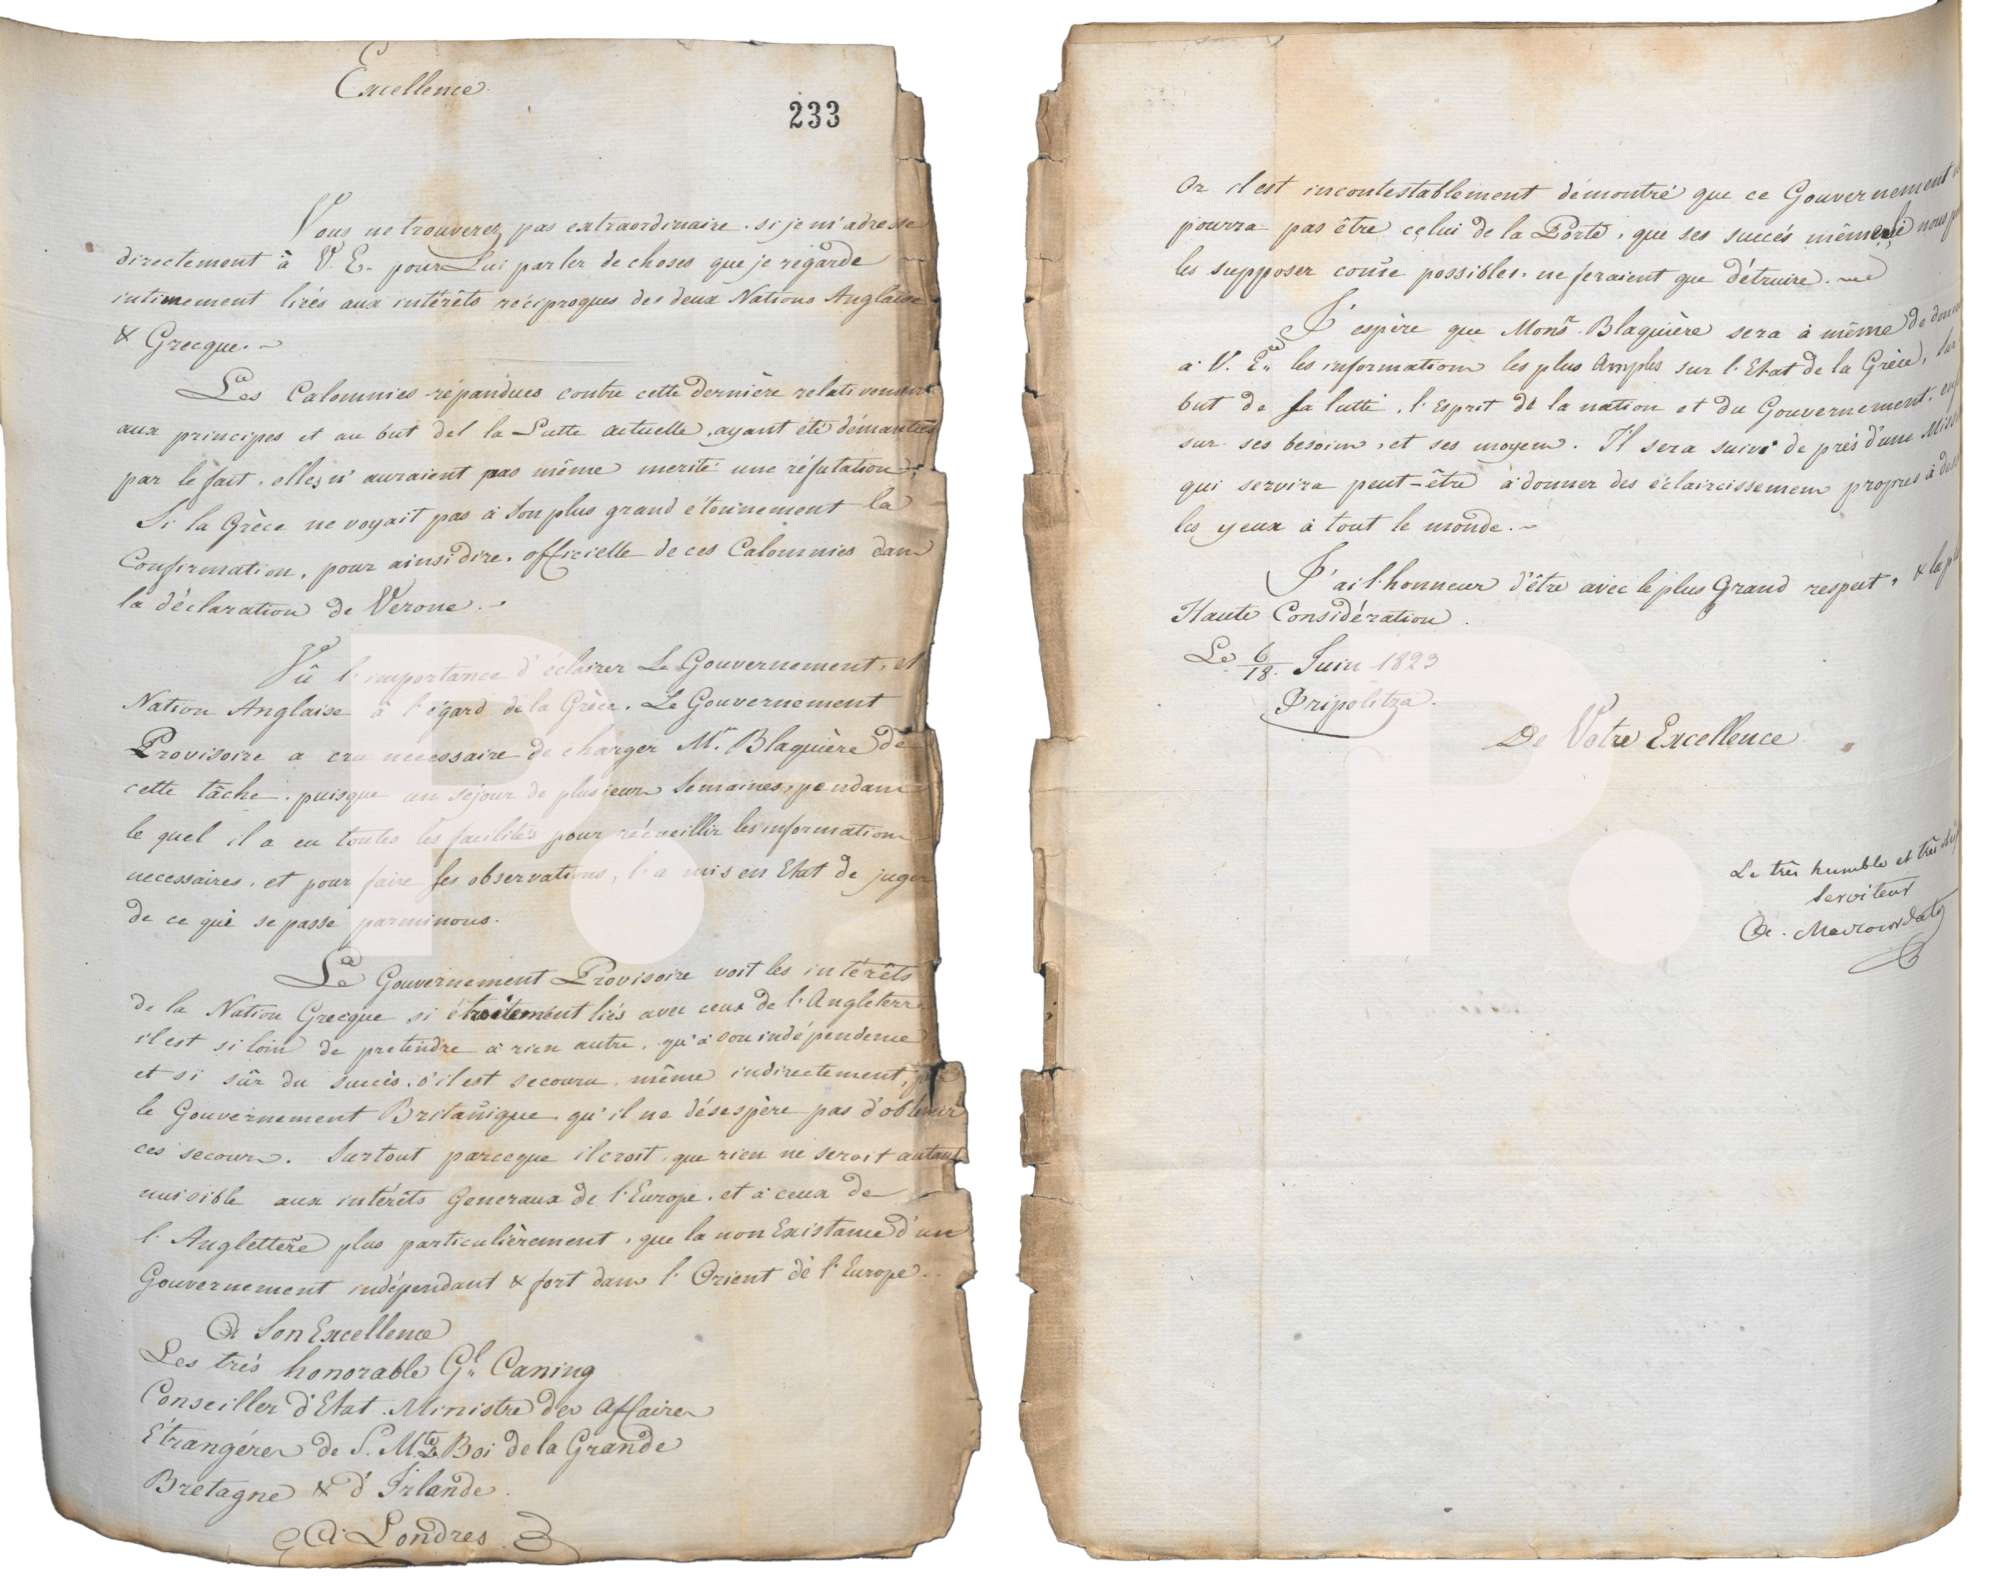 Excellence
233
Vous ne trouverez pas extraordinaire. si je m'adresse
directement à V. E. pour Lui parler de choses que je régarde
intimement liées aux intérêts réciproques des deux Nations Anglaise
& Grecque. ~
Les Calomnies répandues contre cette dernière relativement
aux principes et au but del la Lutte actuelle, ayant été démanties
par le fait, elles n'auraient pas même merité une réfutation
Si la Grèce ne voyait pas à Son plus grand étonnement la
Confirmation, pour ainsi dire, officielle de ces Calomnies dans
la déclaration de Verone. ~
Vû l'importance d'éclairer Le Gouvernement, et
Nation Anglaise à l'égard de la Grèce. Le Gouvernement
Provisoire a cru necessaire de charger Mr. Blaquière de
cette tâche, puisque un sejour de plusieurs Semaines, pendant
le quel il a eu toutes les facilités pour récueillir les informations
necessaires, et pour faire ses observations, l'a mis en Etat de juger
de ce qui se passe parmi nous.
Le Gouvernement Provisoire voit les intérêts
de la Nation Grecque si étroitement liés avec ceux de l'Angleterre
il est si loin de pretendre à rien autre, qu'à son indépendence
et si sûr du succès, s'il est secouru même indirectement, par
le Gouvernement Britañique qu'il ne désespère pas d'obtenir
ces secours. Surtout parceque il croit, que rien ne seroit autant
nuisible aux intérêts Generaux de l'Europe, et à ceux de
l'Anglettere plus particulièrement, que la non Existance d'un
Gouvernement indépendant & fort dans l'Orient de l'Europe.
A Son Excellence
Les très honorable Gl. Caning
Conseiller d'Etat Ministre des Affaires
Etrangéres de S. Mté Le Roi de la Grande
Bretagne & d'Irlande.
A Londres
Or il est incontestablement démontré que ce Gouvernement
pourra pas être celui de la Porte, que ses succés même nous
les supposer cõme possibles. ne feraient que détruire. ~
J'espère que Monsr. Blaquière sera à même de donner
à V. Ece. les informations les plus Amples sur l'Etat de la Grèce, sur
but de sa lutte, l'Esprit de la nation et du Gouvernement.
sur ses besoins, et ses moyens. Il sera suivi de près d'une
qui servira peut-être à donner des éclaircissemens propres à
les yeux à tout le monde. ~
J'ai l'honneur d'être avec le plus Grand respect, & la
Haute Considération.
Le 6/18. Juin 1823
Tripolitza.
De Votre Excellence
Le très humble et très
Serviteur
A. Mavrocordato
P.
P.